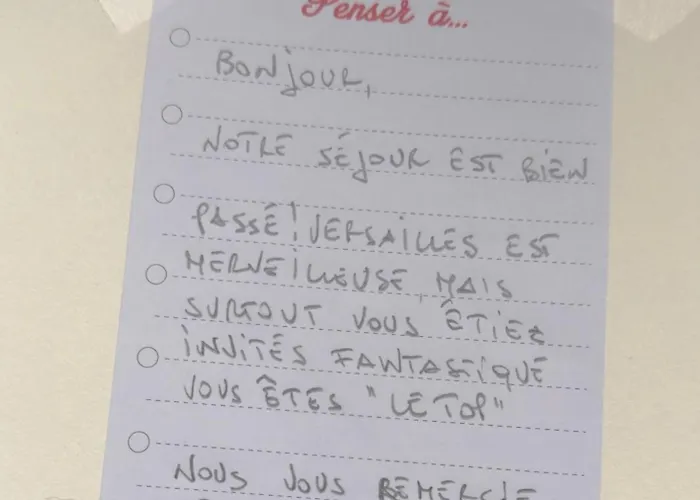 Penser à...
BONJOUR,
NOTRE SÉJOUR EST BIEN
PASSÊ! VERSAILLES EST
MERVEILLEUSE, MAIS
SURTOUT VOUS ÊTIEZ
INVITÉS FANTASTIQUE
VOUS ÊTES "LE TOP"
NOUS VOUS REMERCIE